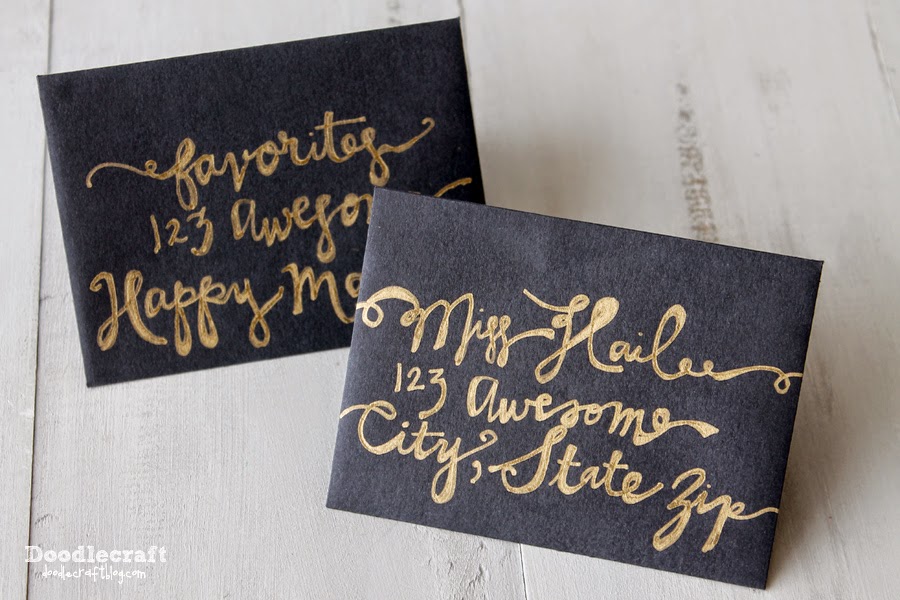 favorites
123 Awesom
Happy Mo
Miss Hailee
123 Awesome
City, State Zip
Doodlecraft
doodlecraftblog.com